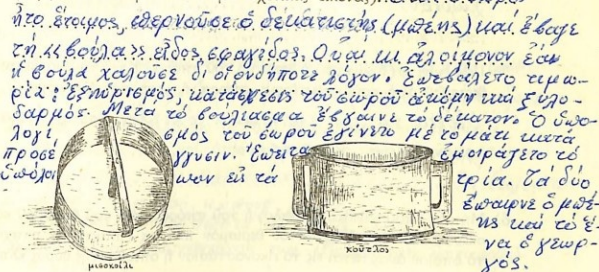 ἦτο ἕτοιμος, ἐπερνοῦσε ὁ δεκατιστής (μπέης) καί ἔβαζε
τή «βούλα» εἶδος σφαγίδος. Οὐαί κι ἀλοίμονον ἐάν
ἡ βούλα χαλοῦσε δι' οἱονδήποτε λόγον. Ἐπεβάλετο τιμω-
ρία: Ἐξευτελισμός, κατάσχεσις τοῦ σωροῦ ἀκόμη καί ξυλο-
δαρμός. Μετά τό βούλιασμα ἔβγαινε τό δέκατον. Ὁ ὑπο-
λογι σμός τοῦ σωροῦ ἐγίνετο μέ τό μάτι κατά
προσέ γγισιν. Ἔπειτα ἐμοιράζετο τό
ὑπόλοι πον εἰς τά τρία. Τά δύο
ἔπαιρνε ὁ μπέ-
ης καί τό ἕ-
να ὁ γεωρ-
γός.
μισοκοίλι
κούτλος